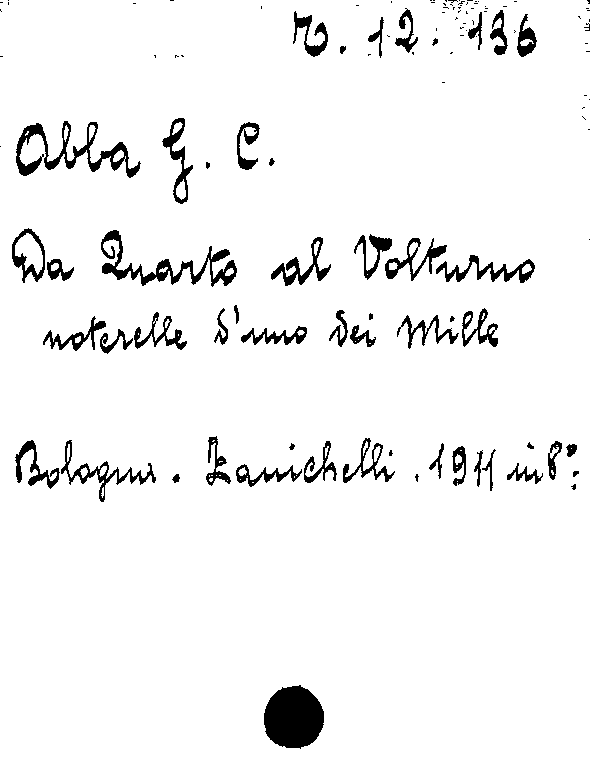 12. 136
Abba G. C.
Da Quarto al Volturno
noterelle d'uno dei Mille
Bologna. Zanichelli. 1911 in 8°.